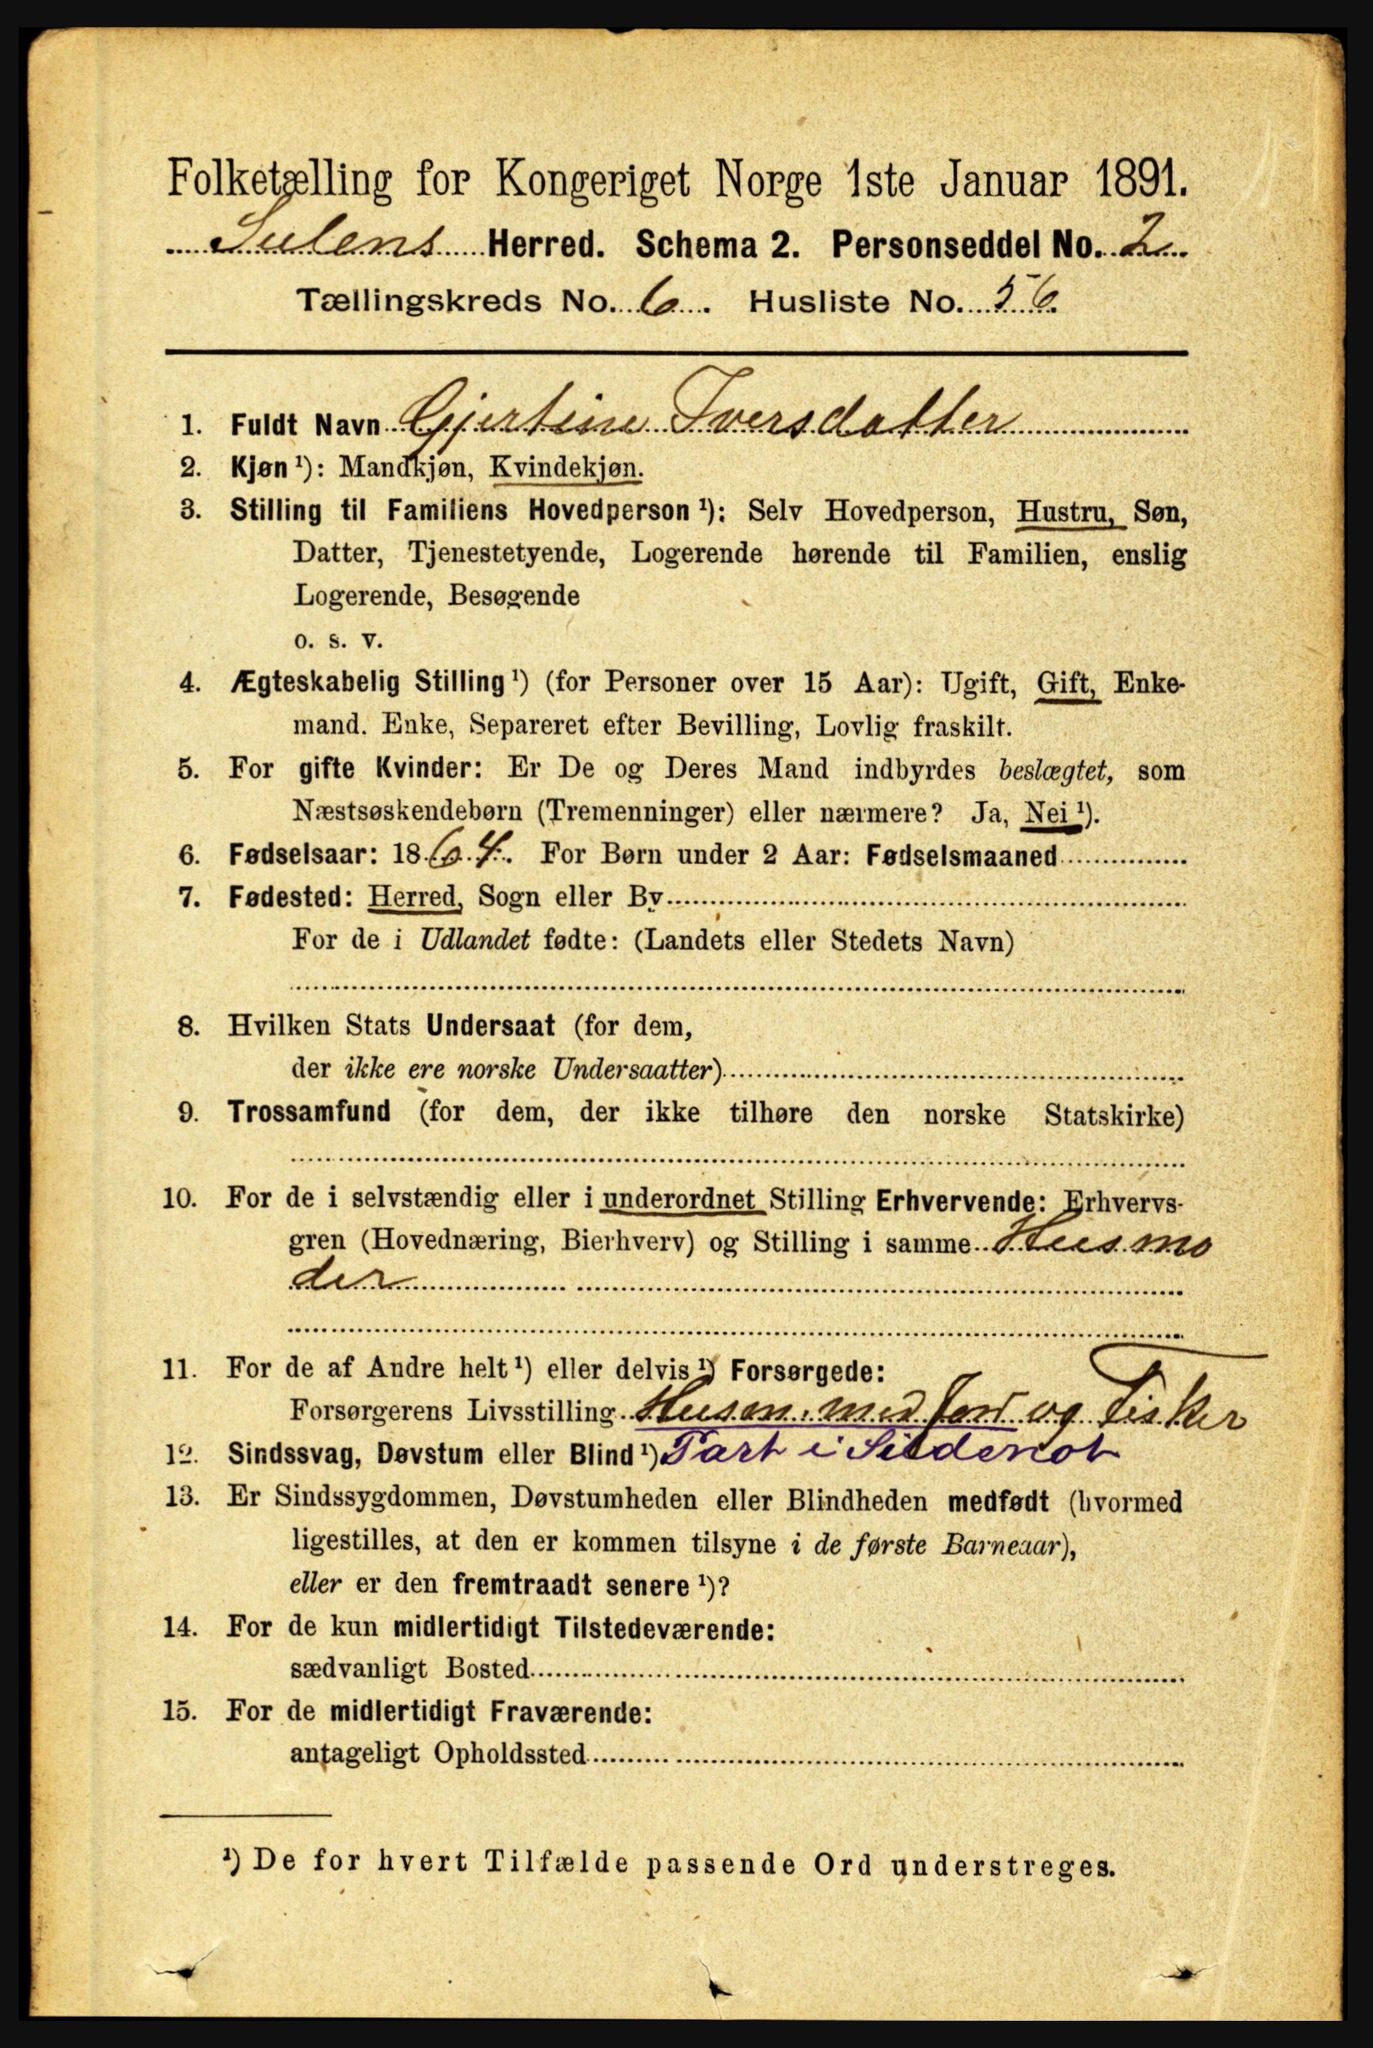 Folketælling for Kongeriget Norge 1ste Januar 1891.
Sulens Herred. Schema 2. Personseddel No. 2
Tællingskreds No. 6. Husliste No. 56
1. Fuldt Navn Gjertine Iversdatter
2. Kjøn ¹): Mandkjøn, Kvindekjøn.
3. Stilling til Familiens Hovedperson ¹): Selv Hovedperson, Hustru, Søn,
Datter, Tjenestetyende, Logerende hørende til Familien, enslig
Logerende, Besøgende
o. s. v.
4. Ægteskabelig Stilling ¹) (for Personer over 15 Aar): Ugift, Gift, Enke-
mand. Enke, Separeret efter Bevilling, Lovlig fraskilt.
5. For gifte Kvinder: Er De og Deres Mand indbyrdes beslægtet, som
Næstsøskendebørn (Tremenninger) eller nærmere? Ja, Nei ¹).
6. Fødselsaar: 1864. For Børn under 2 Aar: Fødselsmaaned
7. Fødested: Herred, Sogn eller By
For de i Udlandet fødte: (Landets eller Stedets Navn)
8. Hvilken Stats Undersaat (for dem,
der ikke ere norske Undersaatter)
9. Trossamfund (for dem, der ikke tilhøre den norske Statskirke)
10. For de i selvstændig eller i underordnet Stilling Erhvervende: Erhvervs-
gren (Hovednæring, Bierhverv) og Stilling i samme Husmo
der
11. For de af Andre helt ¹) eller delvis ¹) Forsørgede:
Forsørgerens Livsstilling Husm. med Jord og Fisker
12. Sindssvag, Døvstum eller Blind ¹) Part i Sildenot
13. Er Sindssygdommen, Døvstumheden eller Blindheden medfødt (hvormed
ligestilles, at den er kommen tilsyne i de første Barneaar),
eller er den fremtraadt senere ¹)?
14. For de kun midlertidigt Tilstedeværende:
sædvanligt Bosted
15. For de midlertidigt Fraværende:
antageligt Opholdssted
¹) De for hvert Tilfælde passende Ord understreges.